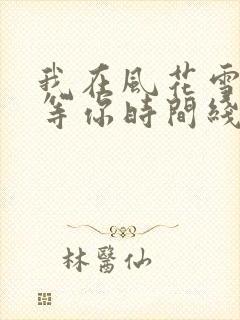 我在風花雪
等你時間綫
林醫仙